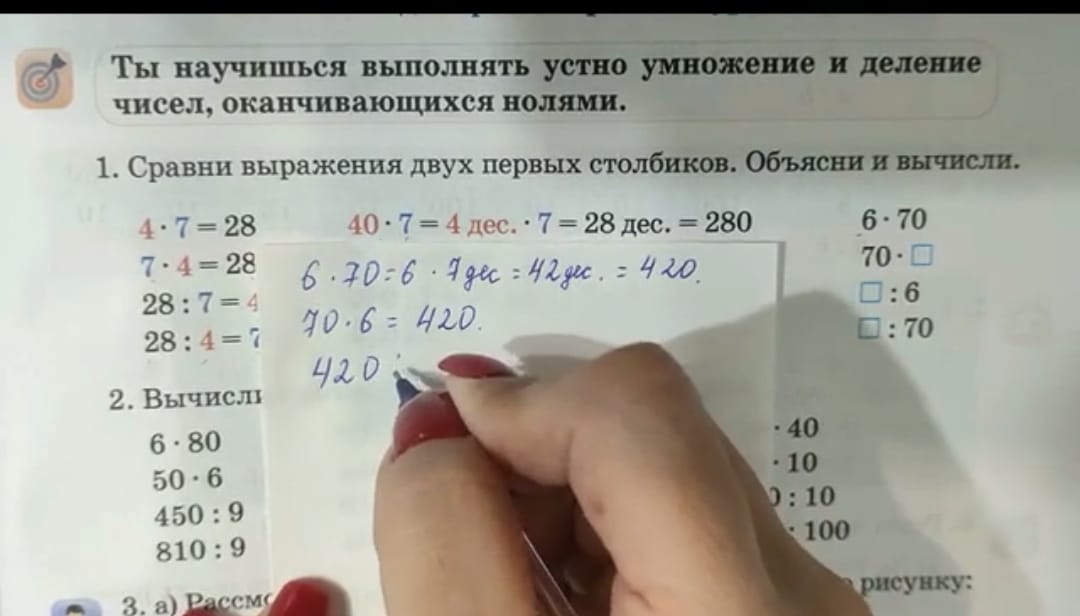 Ты научишься выполнять устно умножение и деление
чисел, оканчивающихся нолями.
1. Сравни выражения двух первых столбиков. Объясни и вычисли.
4 · 7 = 28
7 · 4 = 28
28 : 7 = 4
28 : 4 = 7
40 · 7 = 4 дес. · 7 = 28 дес. = 280
6 · 70
70 · □
□ : 6
□ : 70
6 · 70 = 6 · 7 дес = 42 дес. = 420.
70 · 6 = 420.
420 :
2.
6 · 80
50 · 6
450 : 9
810 : 9
· 40
· 10
: 10
: 100
3. а)
рисунку: